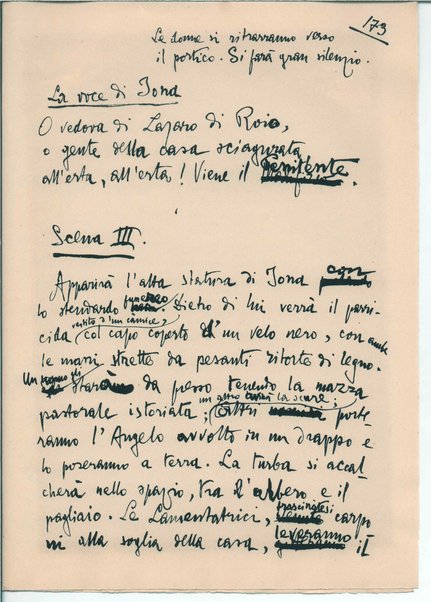 173
Le donne si ritrarranno verso
il portico. Si farà gran silenzio.
La voce di Iona
O vedova di Lazaro di Roio,
o gente della casa sciagurata
all'erta, all'erta! Viene il penitente.
Scena III.
Apparirà l'alta statura di Iona con
lo stendardo funereo. Dietro di lui verrà il parri-
cida vestito d'un camice, col capo coperto d'un velo nero, con ambe
le mani strette da pesanti ritorte di legno.
Un uomo di starà da presso tenendo la mazza
pastorale istoriata; un altro terrà la scure; altri porte-
ranno l'Angelo avvolto in un drappo e
lo poseranno a terra. La turba si accal-
cherà nello spazio, tra l'albero e il
pagliaio. Le Lamentatrici, trascinatesi carpo
ni alla soglia della casa, leveranno il